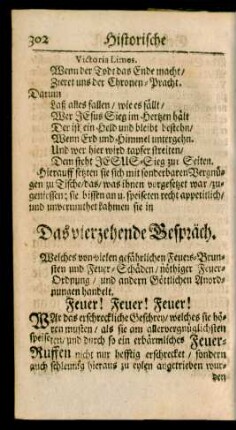 302 Historische
Victoria Limes.
Wenn der Todt das Ende macht/
Zieret uns der Chronen-Pracht.
Darum
Laß alles fallen/ wie es fällt/
Wer JEsus Sieg im Hertzen hält
Der ist ein Held und bleibt bestehn/
Wenn Erd und Himmel untergehn.
Und wer hier wird tapfer streiten/
Dem steht JESUS-Sieg zur Seiten.
Hierauf setzten sie sich mit sonderbaren Vergnü-
gen zu Tische/das/ was ihnen vorgesetzet war/zu-
geniessen; sie bissen an u. speiseten recht appetitlich/
und unvermuthet kahmen sie in
Das vierzehende Gespräch.
Welches von vielen gefährlichen Feuers-Brun-
sten und Feuer-Schäden/ nöthiger Feuer-
Ordnung/ und andern Göttlichen Anord-
nungen handelt.
Feuer! Feuer! Feuer!
WAr das erschreckliche Geschrey/ welches sie hö-
ren musten/ als sie am allervergnüglichsten
speiseten/und durch so ein erbärmliches Feuer-
Ruffen nicht nur hefftig erschrecket/ sondern
auch schleunig hieraus zu eylen angetrieben wur-
den